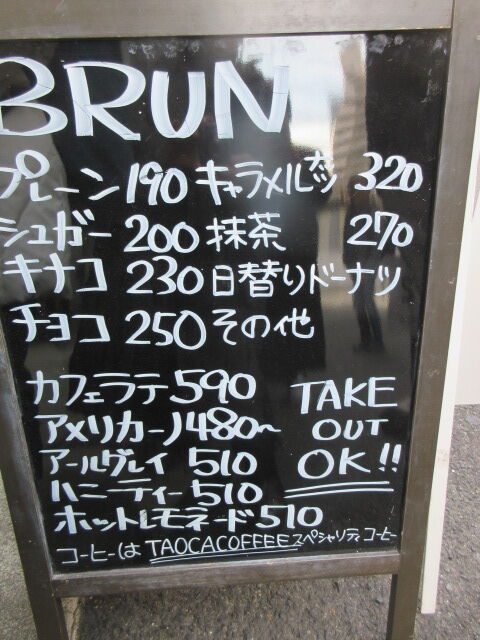 BRUN
プレーン 190 キャラメルナッツ 320
シュガー 200 抹茶 270
キナコ 230 日替りドーナツ
チョコ 250 その他
カフェラテ 590
アメリカーノ 480〜
アールグレイ 510
ハニーティー 510
ホットレモネード 510
TAKE
OUT
OK!!
コーヒーは TAOCACOFFEE スペシャリティコーヒー